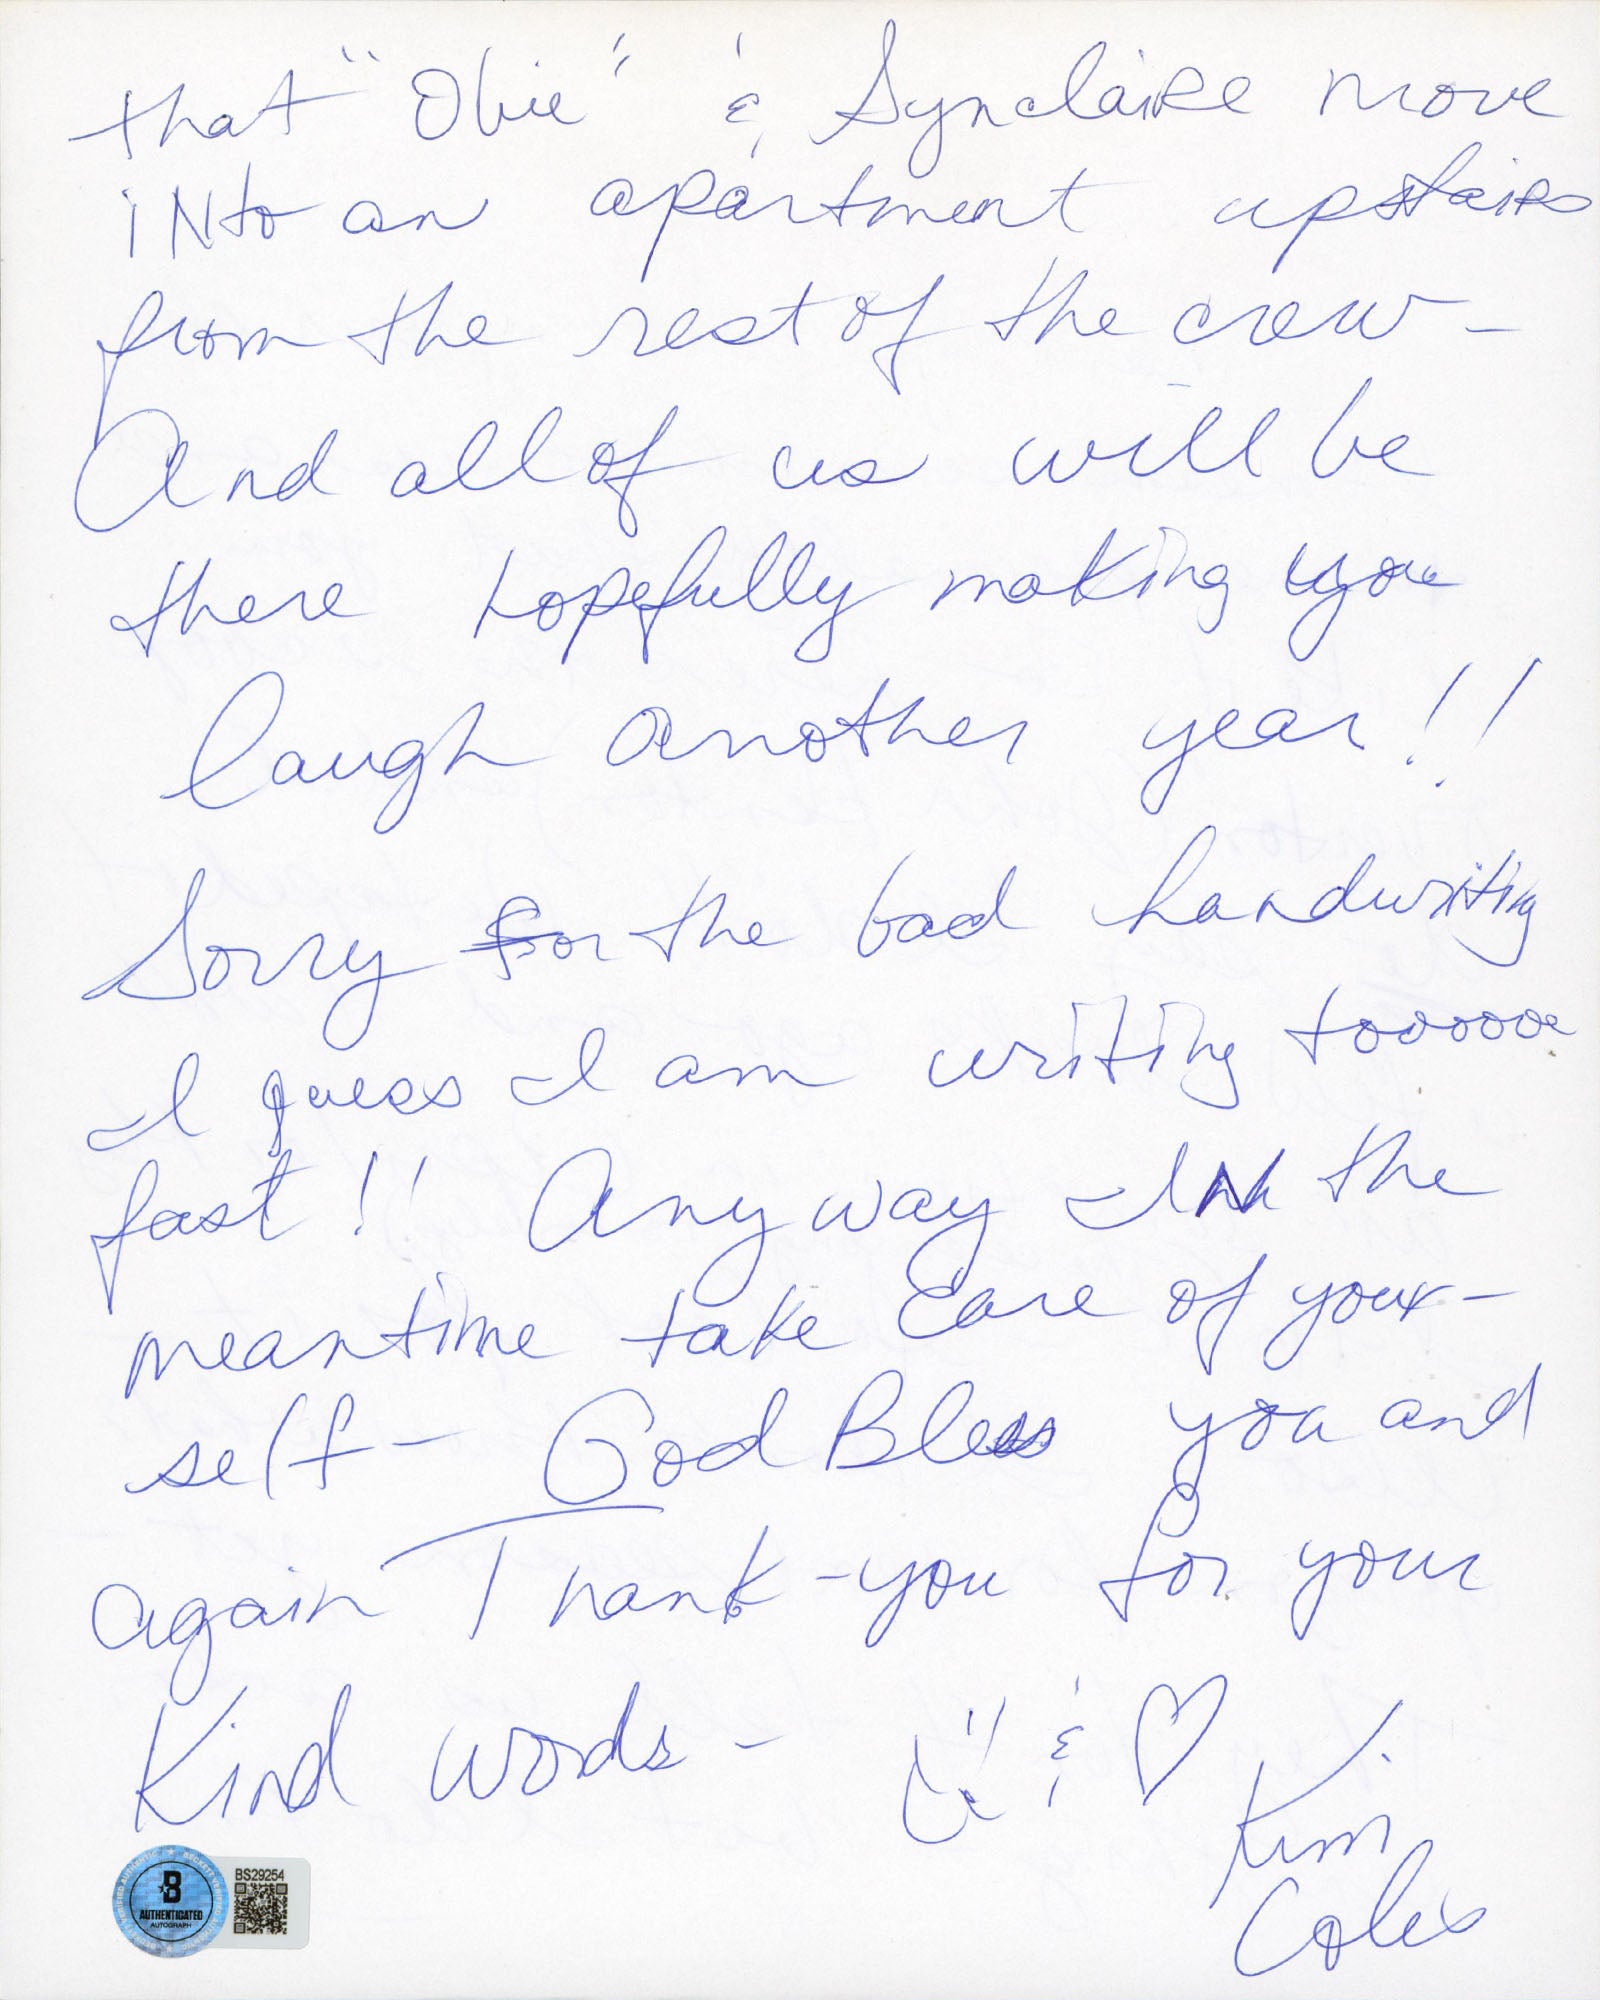 that "Obie" & Synclaire move
into an apartment upstairs
from the rest of the crew-
And all of us will be
there hopefully making you
laugh another year!!
Sorry for the bad handwriting
I guess I am writing toooooo
fast!! Anyway - In the
meantime take care of your-
self - God Bless you and
again Thank-you for your
Kind words - & ♡
Kim
Coles
BECKETT AUTHENTIC
B
AUTHENTICATED
AUTOGRAPH
BS29254